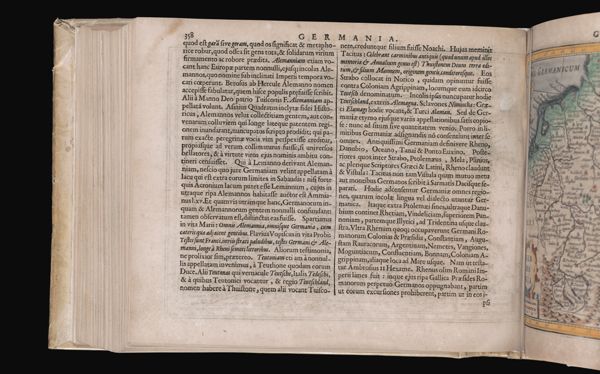 358
GERMANIA.
quod est gar & sive geram, quod os significat & metapho-
rice robur, quod ossea sit gens tota, & solidarum virium
firmamento ac robore prædita. Alemanniam etiam vo-
cant hanc Europæ partem nonnulli, ejusq; incolas Ale-
mannos, quo nomine sub inclinati Imperii tempora vo-
cari cœperunt. Berosus ab Hercule Alemanno nomen
accepisse fabulatur, quem hisce populis præfuisse scribit.
Alii à Manno Deo patrio Tuisconis F. Alemanniam ap-
pellatā volunt. Asinius Quadratus inclytæ fidei Histo-
ricus, Alemannos velut collectitiam gentem, aut con-
venarum colluviem qui longe lateque patentem regi-
onem inundarant, nuncupatos scriptis prodidit; qui pa-
rum exacte peregrinæ vocis vim perspexisse creditur,
propiusque ad verum collimamus fuisse, si universos
bellatores, & à virtute viros ejus nominis ambitu con-
tineri censuisset. Qui à Lemanno derivant Aleman-
niam, nescio quo jure Germaniam velint appellatam à
lacu qui est extra eorum limites in Sabaudis: nisi forte
quis Acronium lacum putet esse Lemannum, cujus in
utraque ripa Alemannos habitasse auctor est Ammia-
nus l.xv. Et quamvis utrinque hanc, Germanorum in-
quam & Alemannorum gentem nonnulli consundant
tamen observatum est, distinctas eas fuisse. Spartianus
in vita Marii: Omnis Alemannia, omnisque Germania, cum
cæteris quæ adjacent gentibus. Flavius Vopiscus in vita Probi:
Testes sunt Franci inviis strati paludibus, testes Germani & Ale-
manni, longe à Rheni semoti littoribus. Aliorum testimonia,
ne prolixus sim, prætereo. Teutoniam eti am à nonnul-
lis appellatam invenimus, à Teuthone quodam eorum
Duce. Alii Teutonas qui vernacule Teutsche, Italis Tedeschi,
& à quibus Teutonici vocantur, & regio Teutschland,
nomen habere à Thuistone, quem alii vocant Tuisco-
nem, creduntque filium fuisse Noachi. Hujus meminit
Tacitus: Celebrant carminibus antiquis (quod unum apud illos
memoriæ & Annalium genus est) Thuistonem Deum terra edi-
tum, & filium Mannum, originem gentis, conditoresque. Eos
Strabo collocat in Norico, quidam opinantur fuisse
contra Coloniam Agrippinam, locumque eum idcirco
Teutsch denominatum. Incolis ipsis nuncupatur hodie
Teutschland, exteris Alemagna. Sclavones Nimiecha: Græ-
ci Elamags hodie vocant, & Turci Alaman. Sed de Ger-
maniæ etymo ejusque variis appellationibus satis copio-
se: nunc ad situm sive quantitatem venio. Porro in li-
mitibus Germaniæ assignandis nō consentiunt inter se
omnes. Antiquissimi Germaniam definiere Rheno,
Danubio, Oceano, Tanai & Ponto Euxino. Poste-
riores quos inter Strabo, Ptolemæus, Mela, Plinius,
ac plerique Scriptores Græci & Latini, Rheno claudunt
& Vistula: Tacitus non tam Vistula quam mutuo metu
aut montibus Germanos scribit à Sarmatis Dacisque se-
parari. Hodie adcensentur Germaniæ omnes regio-
nes, quarum incolæ lingua vel dialecto utuntur Ger-
manica. Itaque extra Ptolemæi fines, altraque Danu-
bium continet Rhetiam, Vindeliciam, superiorem Pan-
noniam, partemque Illyrici, ad Tridentina usque clau-
stra. Ultra Rhenum quoq; occupaverunt Germani Ro-
manorum Colonias & Præsidia, Constantiam, Augu-
stam Rauracorum, Argentinam, Nemetes, Vangiones,
Moguntiacum, Confluentiam, Bonnam, Coloniam A-
grippinam, aliaque loca ad Mare usque. Nam ut testa-
tur Ambrosius II Hexame. Rhenus olim Romani Im-
perii limes fuit: inque ejus ripa Gallica Præsides Ro-
manorum perpetuo Germanos oppugnabant, partim
ut eorum excursiones prohiberent, partim ut in eos i-
psi
GERMANICUM
G